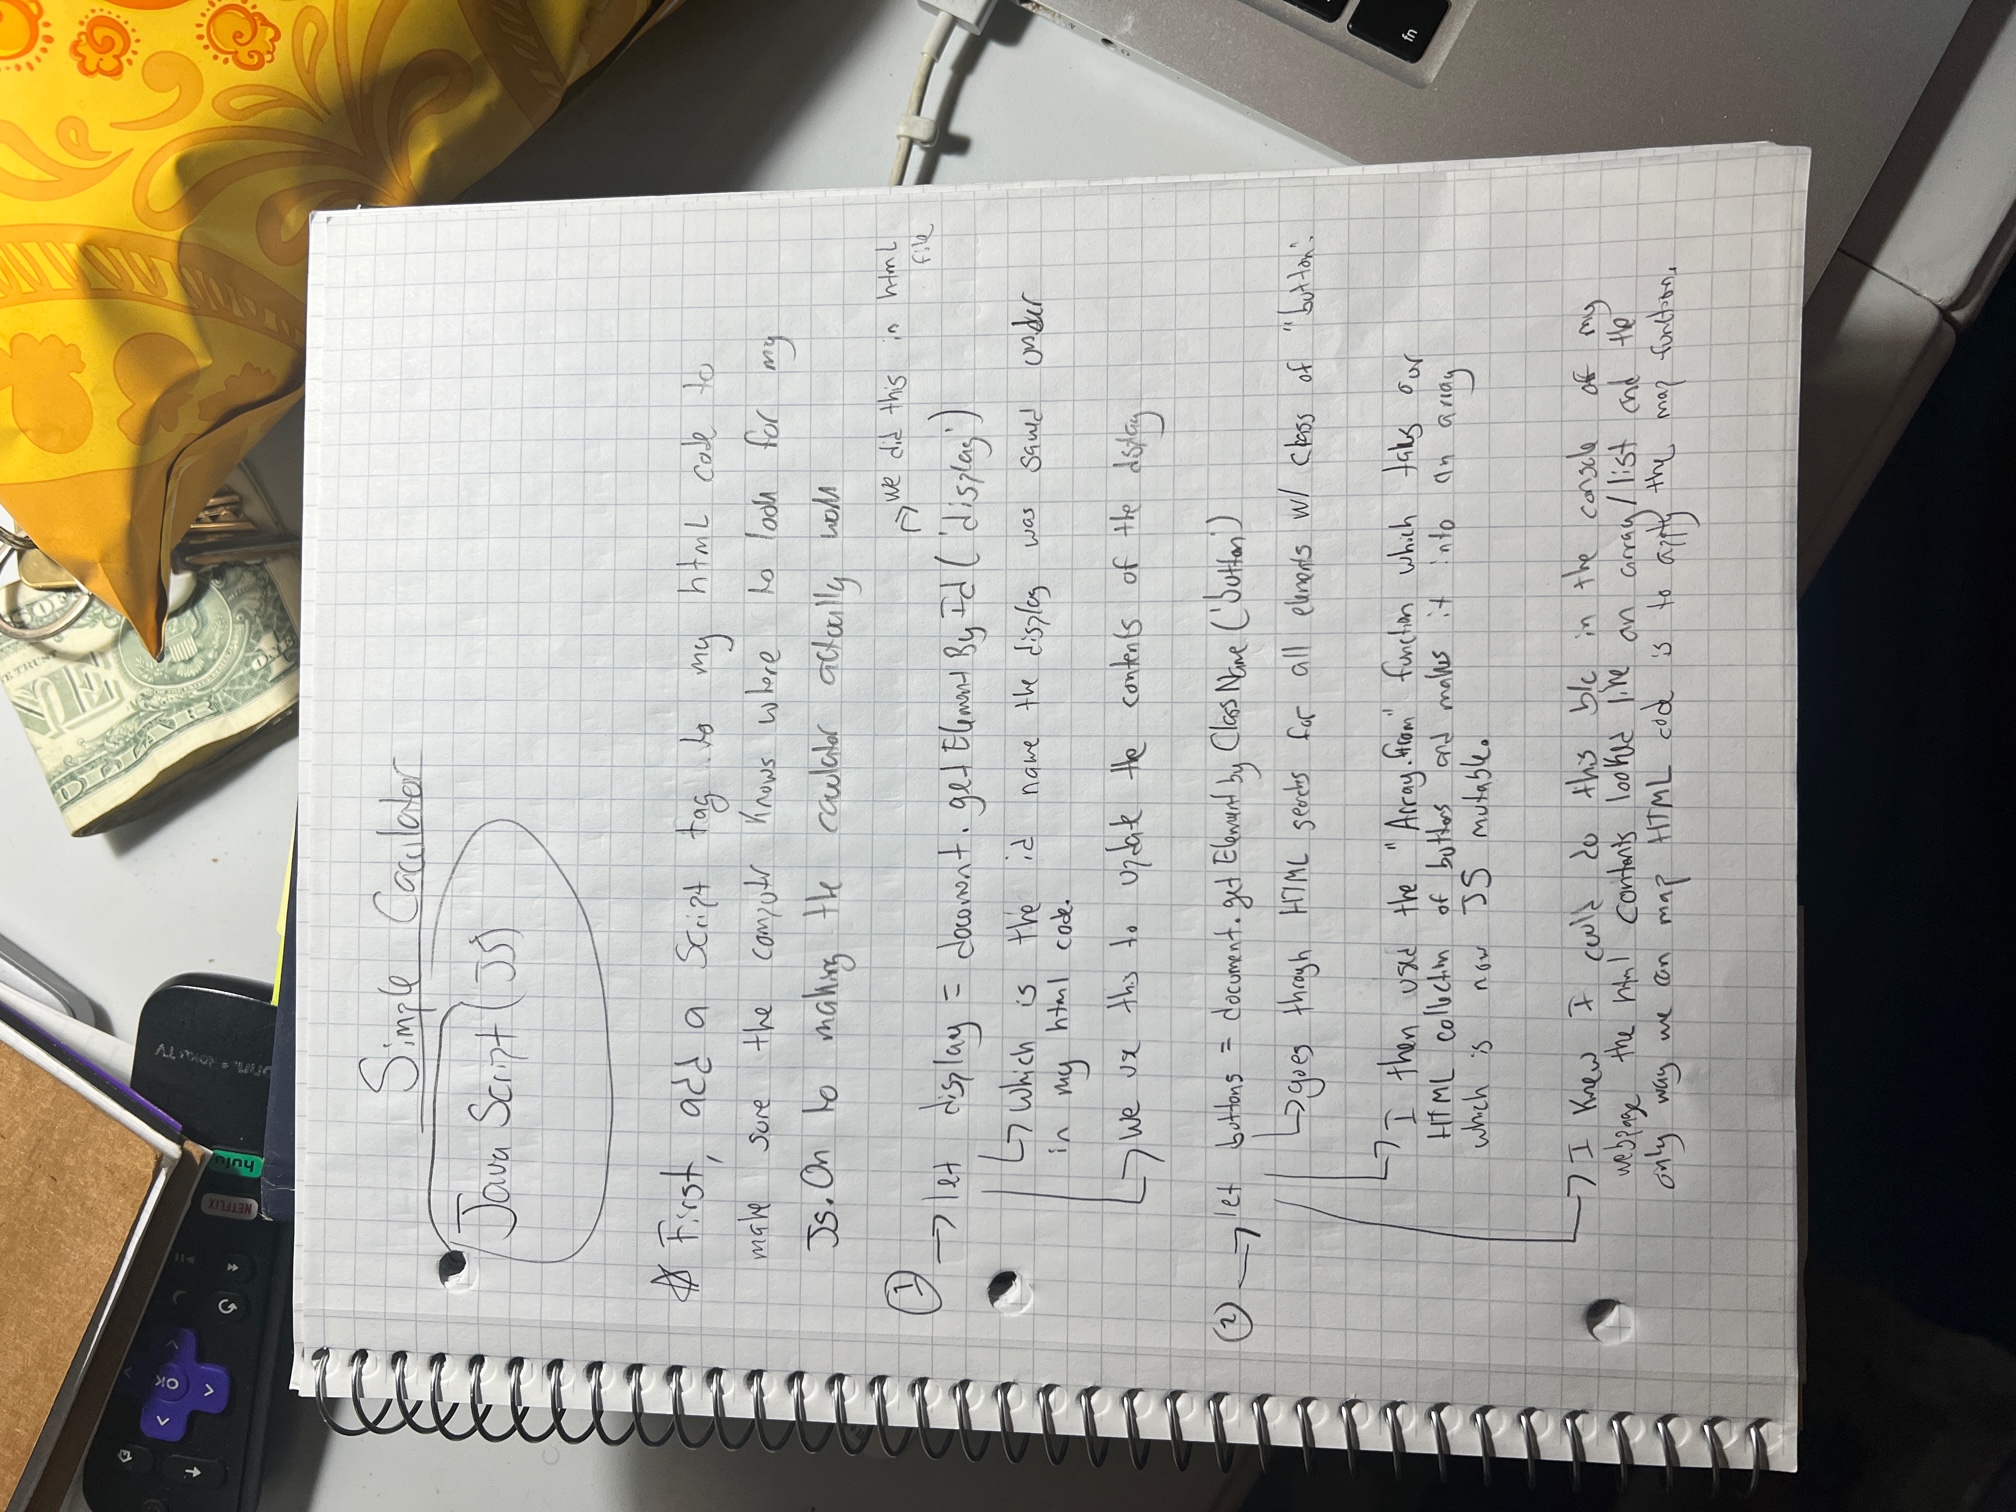 Simple Caculator
Java Script (JS)
First, add a Script tag to my html code to
make sure the computr knows where to look for my
Js. On to making the caculator actually work
we did this in html
file
1
let display = document.getElementById('display')
which is the id name the display was saved under
in my html code.
we use this to update the contents of the display
2
let buttons = document.getElementbyClassName('button')
goes throgh HTML searchs for all elements w/ class of "button".
I then used the "Array.from" function which takes our
HTML collection of buttons and makes it into an array
which is now JS mutable.
I Knew I could do this b/c in the console of my
webpage the html contents looked like an array/list and the
only way we can map HTML code is to apply the map function.
OK
NETFLIX
hulu
ONE
fn